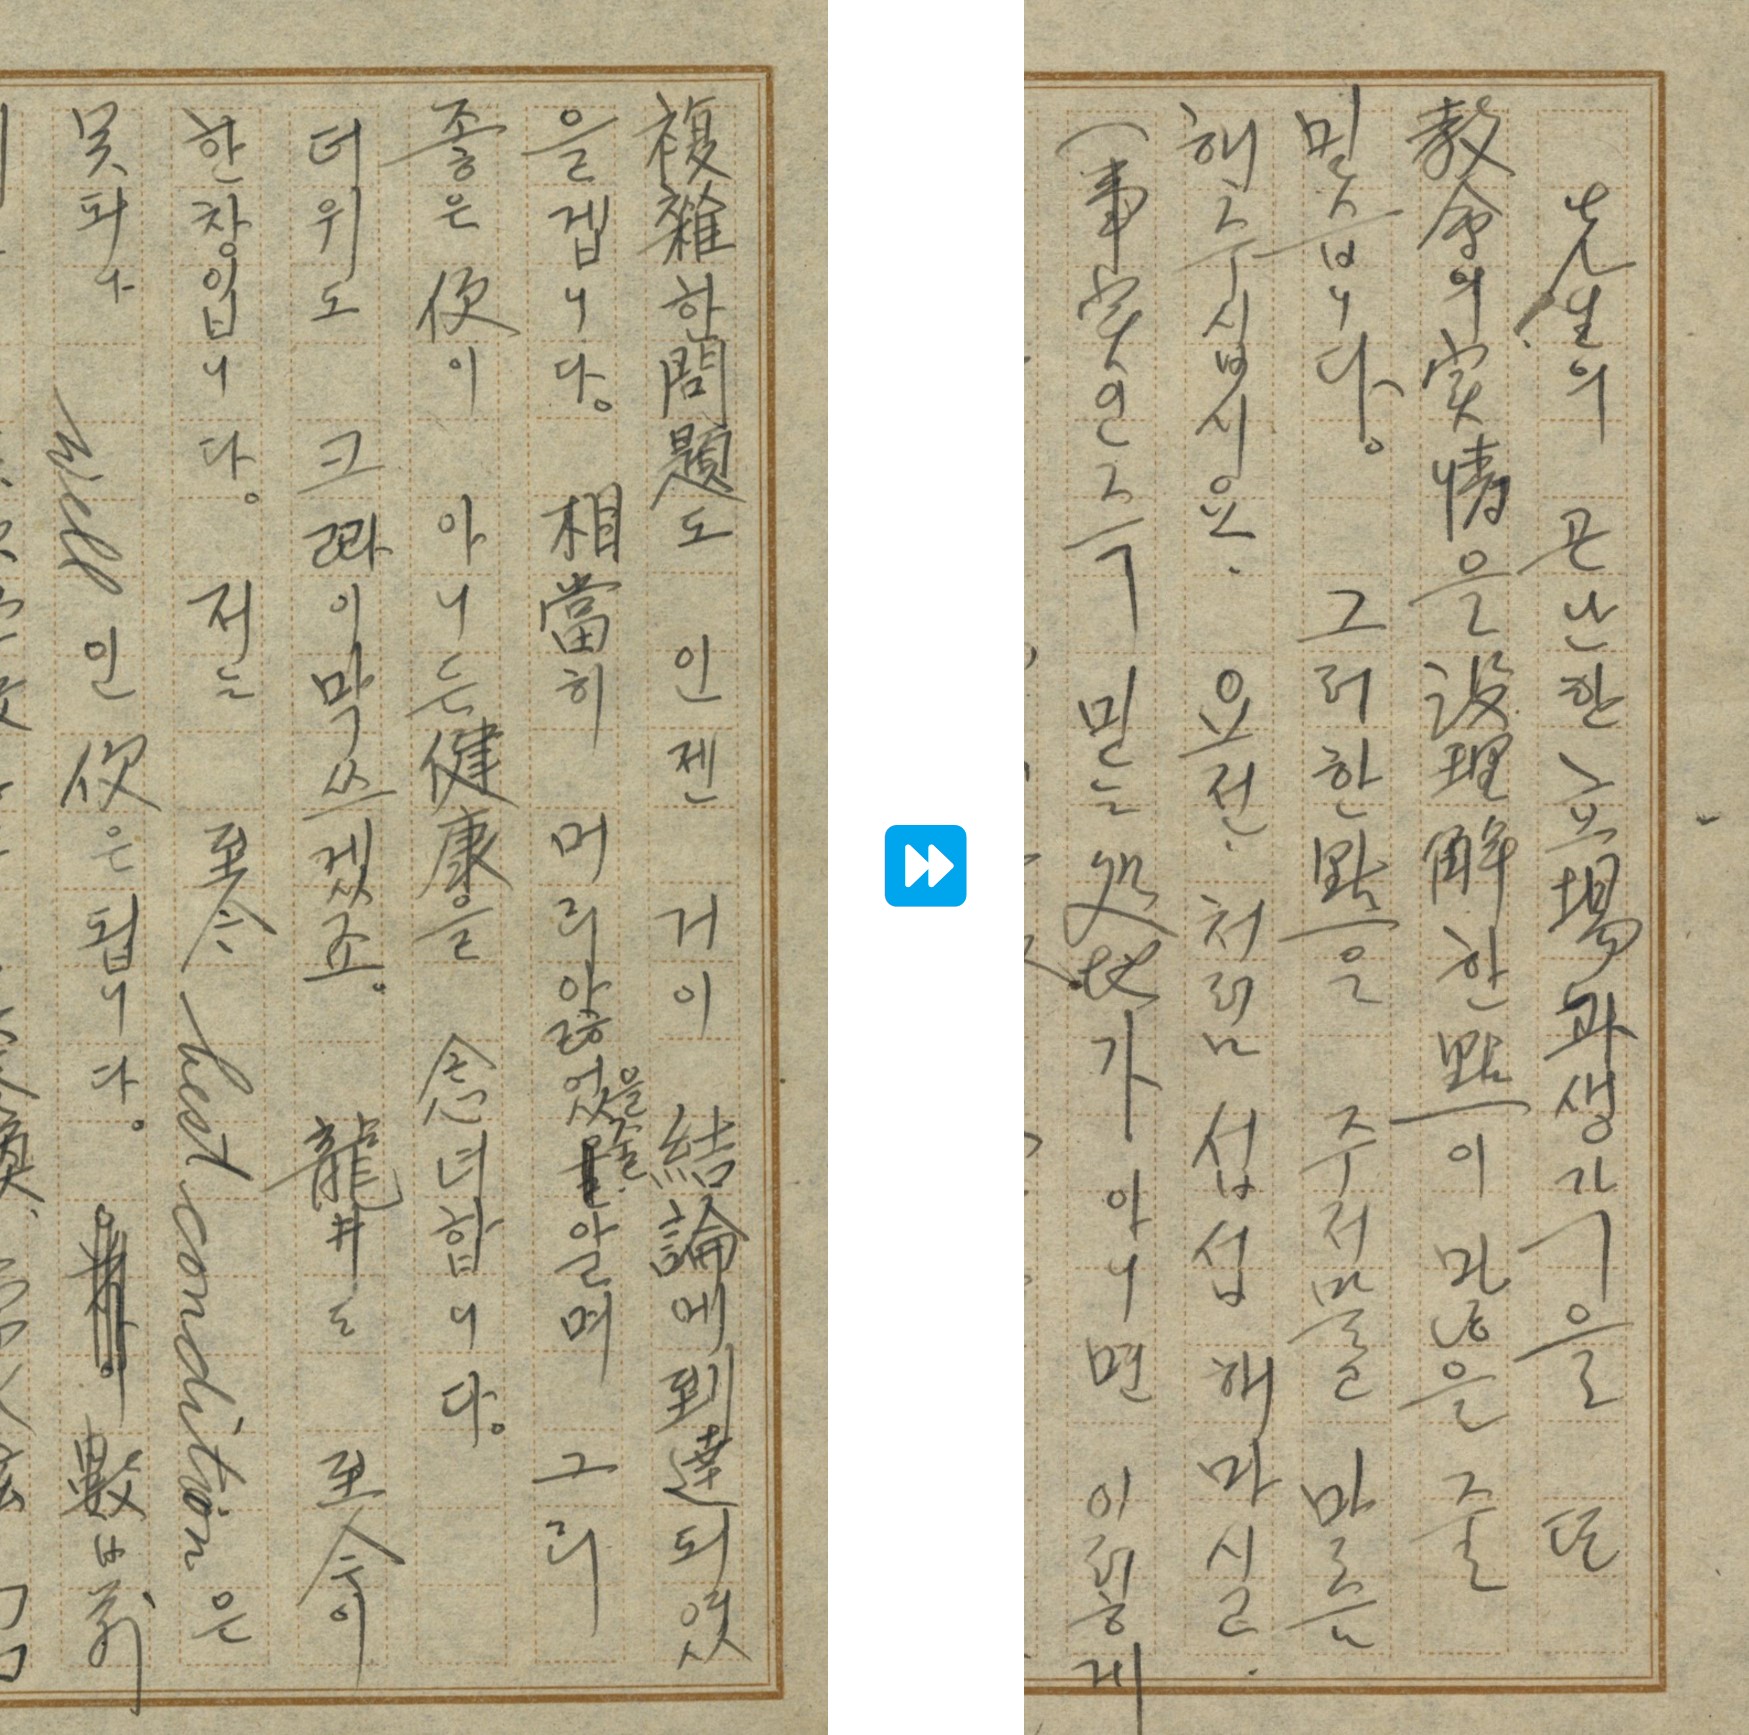 複雜한 問題도 인젠 거이 結論에 到達되였
을겝니다。 相當히 머리앓었을줄 알며 그리
좋은 便이 아니든 健康을 念녀합니다。
더위도 크롸이막쓰겠죠。 龍井는 至今이
한창입니다。 저는 至今 best condition은
못되나 well인 便은 됩니다。 數日前
先生의 곤난한 立場과 을 또
敎會의 実情을 沒理解한 點이 많은 줄
믿습니다。 그러한 點은
해주십시요. 요전. 처럼 섭섭 해 마시고.
(事実인즉 믿는 処地가 아니면 이렇게